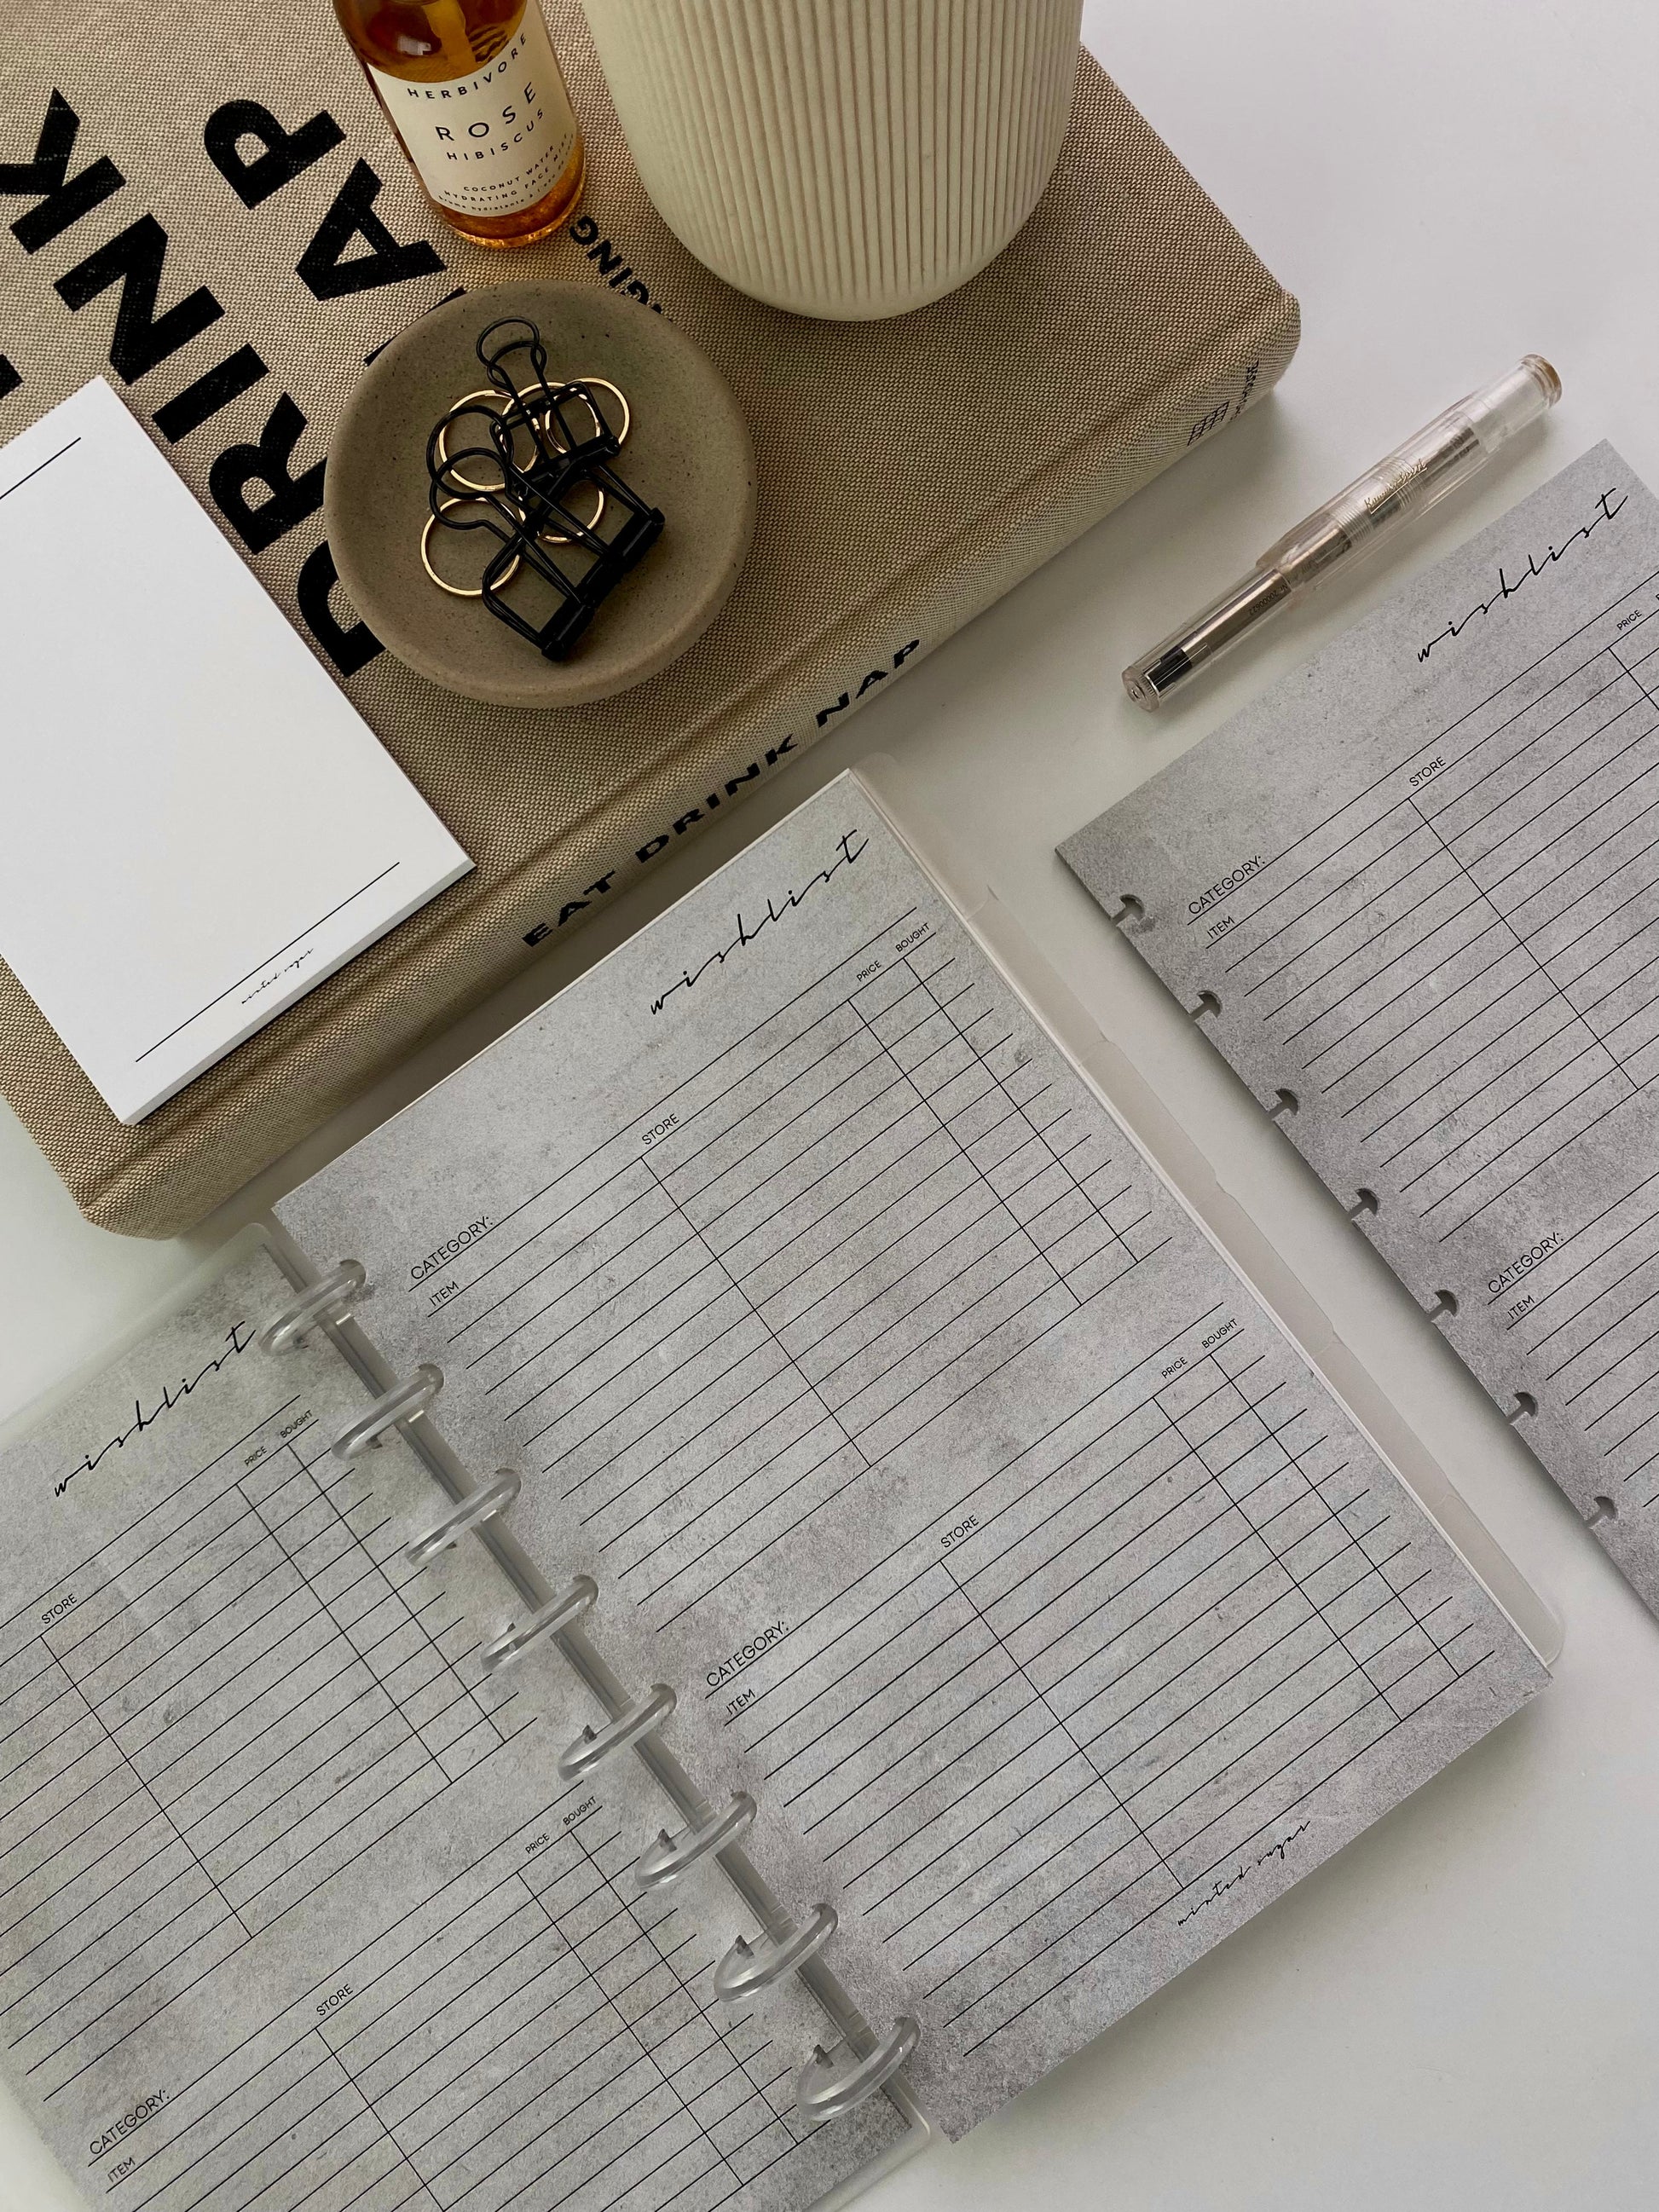 HERBIVORE
ROSE
HIBISCUS
COCONUT WATER
HYDRATING FACE MIST
DRINK
NAP
EAT DRINK NAP
Kaweco Sport
minted sugar
wishlist
CATEGORY:
ITEM STORE PRICE BOUGHT
CATEGORY:
ITEM STORE PRICE BOUGHT
minted sugar
wishlist
STORE PRICE BOUGHT
CATEGORY:
ITEM STORE PRICE BOUGHT
wishlist
CATEGORY:
ITEM STORE PRICE
CATEGORY:
ITEM